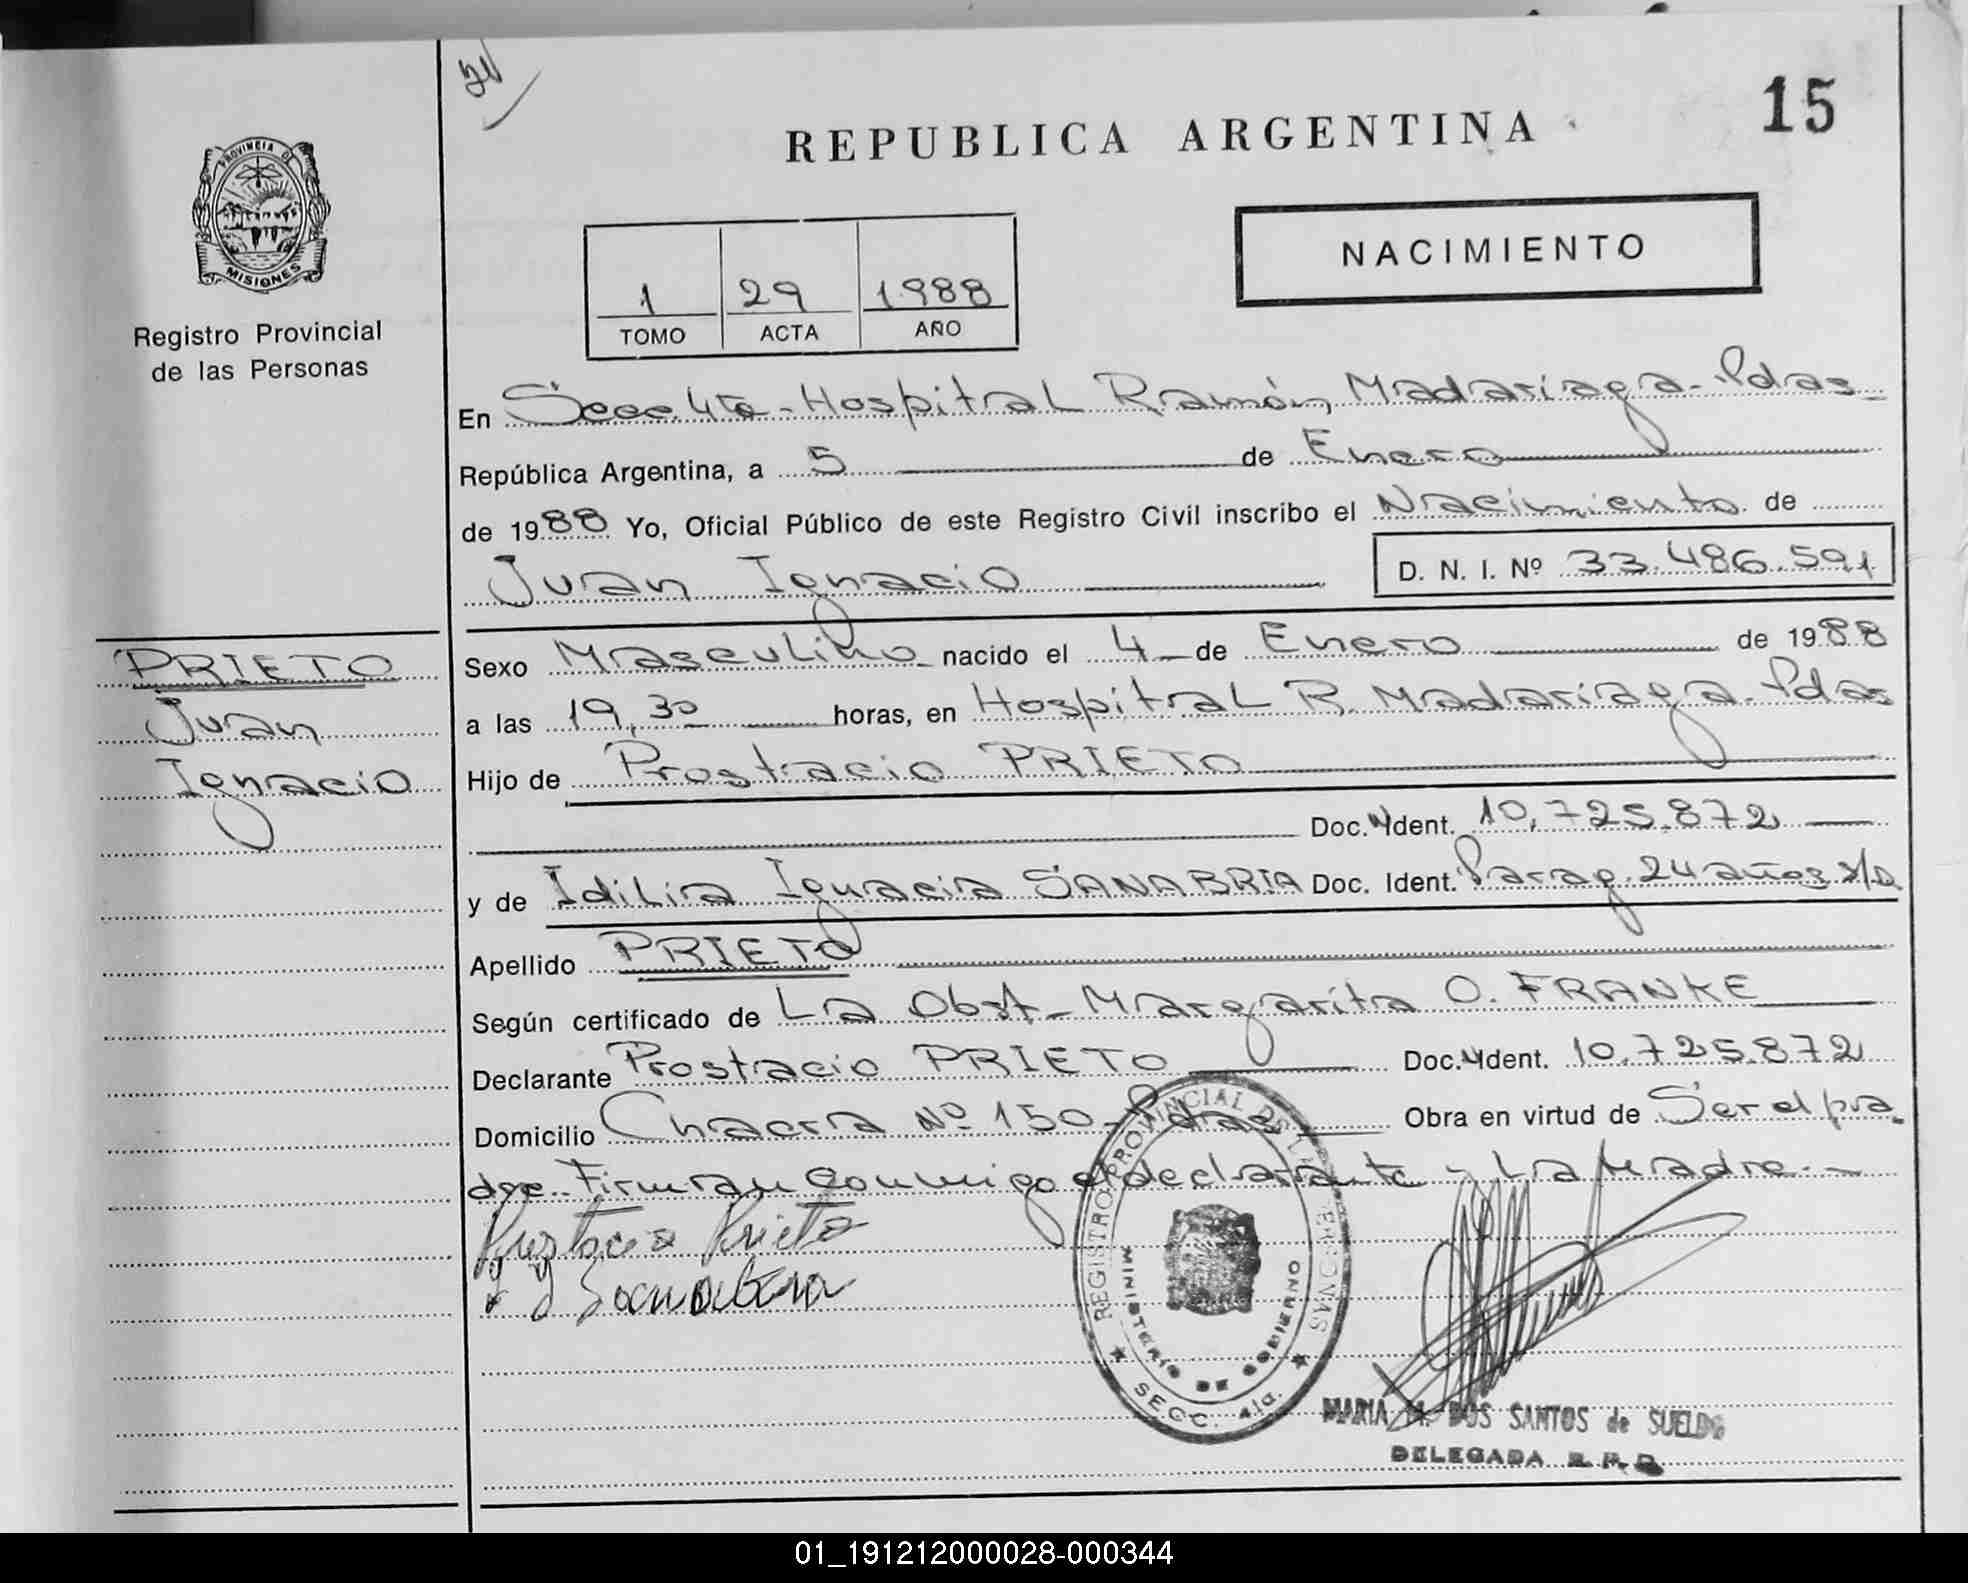 24
15
REPUBLICA ARGENTINA
PROVINCIA DE
MISIONES
Registro Provincial
de las Personas
NACIMIENTO
1 29 1988
TOMO ACTA AÑO
En Secc 4ta - Hospital Ramón Madariaga - Pdas -
República Argentina, a 5 de Enero
de 1988 Yo, Oficial Público de este Registro Civil inscribo el Nacimiento de
Juan Ignacio D. N. I. Nº 33.486.591
PRIETO
Juan
Ignacio
Sexo Masculino nacido el 4 de Enero de 1988
a las 19,30 horas, en Hospital R. Madariaga - Pdas
Hijo de Prostacio PRIETO
Doc. Ident. 10.725.872
y de Idilia Ignacia SANABRIA Doc. Ident. Parag. 24 años s/D
Apellido PRIETO
Según certificado de La Obst - Margarita O. FRANKE
Declarante Prostacio PRIETO Doc. Ident. 10.725.872
Domicilio Chacra Nº 150 - Pdas Obra en virtud de Ser el pa
dre. Firman conmigo el declarante y La Madre.-
Prieto
REGISTRO PROVINCIAL DE LAS PERSONAS
MINISTERIO DE GOBIERNO
SECC. 4ta.
MARIA M. DOS SANTOS de SUELDO
DELEGADA R. P. P.
01_191212000028-000344